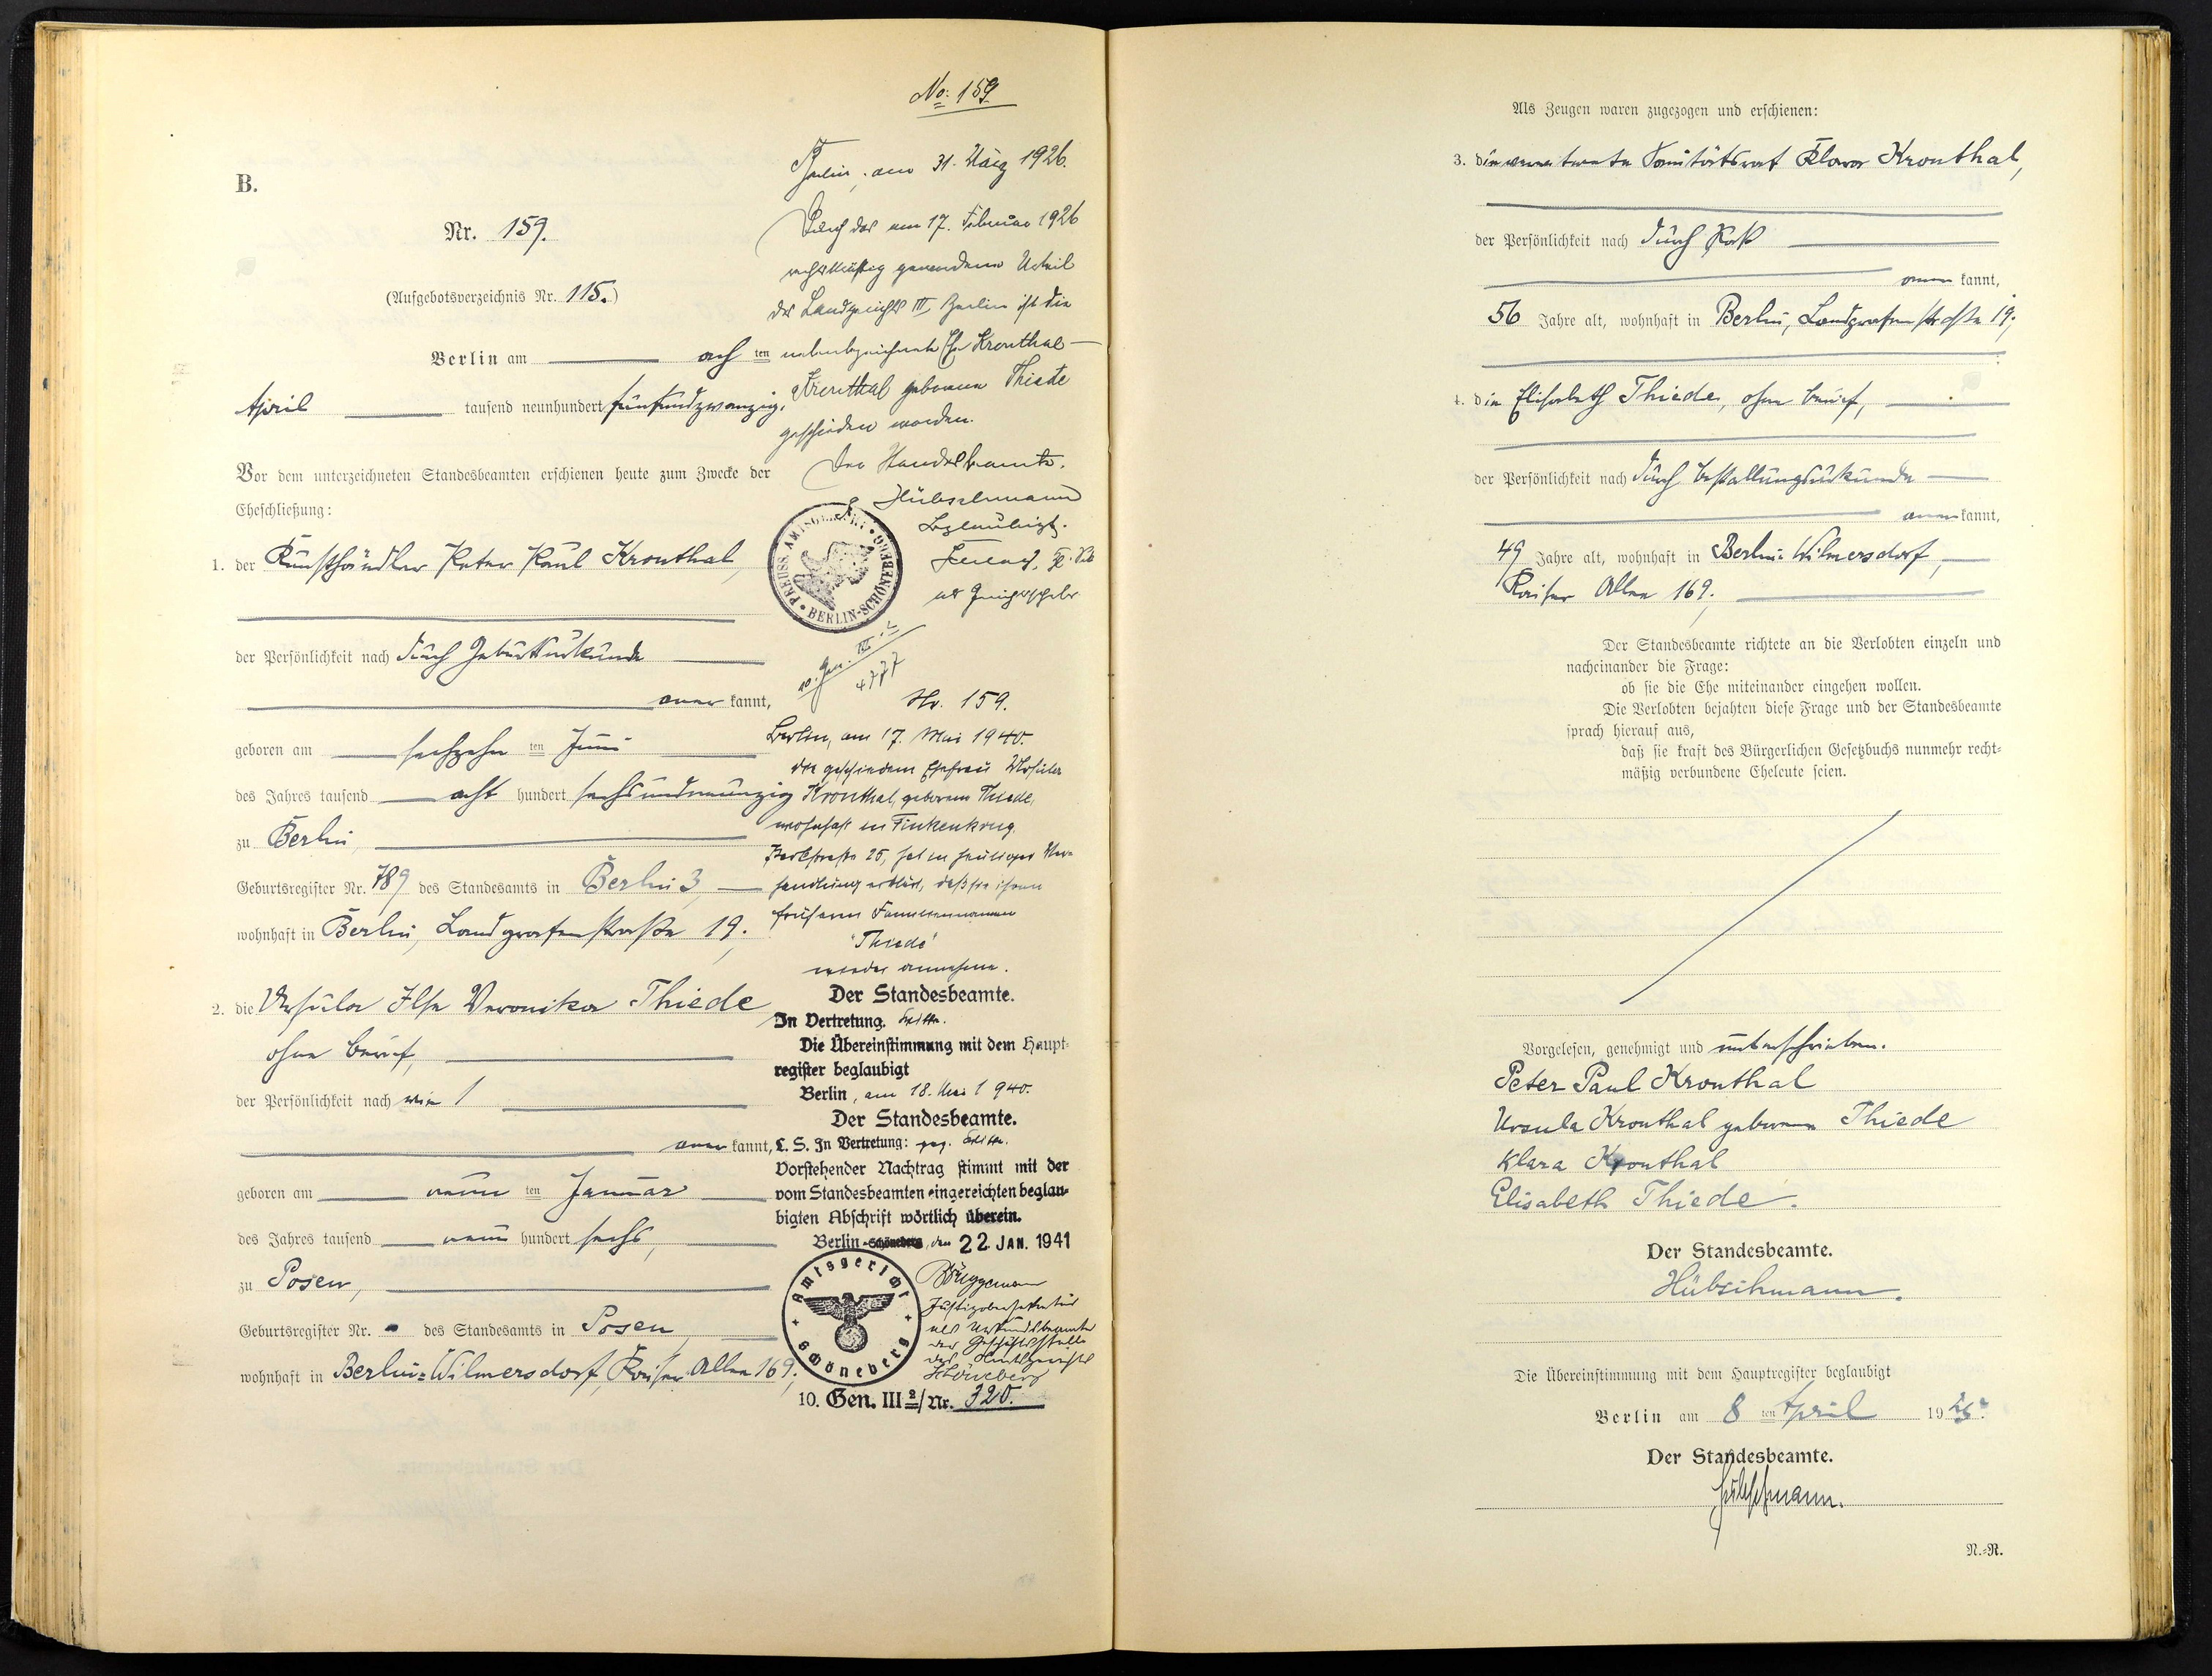 B.
Nr. 159.
(Aufgebotsverzeichnis Nr. 115.)
Berlin am ach ten
April tausend neunhundert fünfundzwanzig.
Vor dem unterzeichneten Standesbeamten erschienen heute zum Zwecke der
Eheschließung:
1. der Kunsthändler Peter Paul Kronthal,
der Persönlichkeit nach durch Geburtsurkunde
aner kannt,
geboren am sechzehn ten Juni
des Jahres tausend acht hundert sechsundneunzig
zu Berlin,
Geburtsregister Nr. 789 des Standesamts in Berlin 3,
wohnhaft in Berlin, Landgrafenstraße 19;
2. die Ursula Ilse Veronika Thiede
ohne Beruf,
der Persönlichkeit nach wie 1
aner kannt,
geboren am neun ten Januar
des Jahres tausend neun hundert sechs,
zu Posen,
Geburtsregister Nr. - des Standesamts in Posen,
wohnhaft in Berlin-Wilmersdorf, Kaiser Allee 169;
No: 159
Berlin, am 31. März 1926.
Durch das am 17. Februar 1926
rechtskräftig gewordene Urteil
des Landgerichts III Berlin ist die
nebenbezeichnete Ehe Kronthal-
Kronthal geborene Thiede
geschieden worden.
Der Standesbeamte.
Hübschmann
Beglaubigt.
als Gerichtsschrbr
PREUSS. AMTSGERICHT BERLIN-SCHÖNEBERG
10. Gen. III
4777
Nr. 159.
Berlin, am 17. Mai 1940.
Die geschiedene Ehefrau Ursula
Kronthal, geborene Thiede,
wohnhaft in Finkenkrug,
25, hat in heutiger Ver-
handlung erklärt, daß sie ihren
früheren Familiennamen
"Thiede"
wieder annehme.
Der Standesbeamte.
In Vertretung.
Die Übereinstimmung mit dem Haupt-
register beglaubigt
Berlin, am 18. Mai 1940.
Der Standesbeamte.
L. S. In Vertretung: gez.
Vorstehender Nachtrag stimmt mit der
vom Standesbeamten eingereichten beglau-
bigten Abschrift wörtlich überein.
Berlin-Schöneberg, den 22. JAN. 1941
Brüggemann
Justizobersekretär
als Urkundsbeamter
der Geschäftsstelle
des Amtsgerichts
Schöneberg
Amtsgericht Schöneberg
10. Gen. III 2/Nr. 320.
Als Zeugen waren zugezogen und erschienen:
3. die verwitwete Sanitätsrat Klara Kronthal,
der Persönlichkeit nach durch Paß
aner kannt,
56 Jahre alt, wohnhaft in Berlin, Landgrafenstraße 19;
4. die Elisabeth Thiede, ohne Beruf,
der Persönlichkeit nach durch Bestallungsurkunde
aner kannt,
49 Jahre alt, wohnhaft in Berlin-Wilmersdorf,
Kaiser Allee 169;
Der Standesbeamte richtete an die Verlobten einzeln und
nacheinander die Frage:
ob sie die Ehe miteinander eingehen wollen.
Die Verlobten bejahten diese Frage und der Standesbeamte
sprach hierauf aus,
daß sie kraft des Bürgerlichen Gesetzbuchs nunmehr recht-
mäßig verbundene Eheleute seien.
Vorgelesen, genehmigt und unterschrieben.
Peter Paul Kronthal
Ursula Kronthal geborene Thiede
Klara Kronthal
Elisabeth Thiede.
Der Standesbeamte.
Hübschmann.
Die Übereinstimmung mit dem Hauptregister beglaubigt
Berlin am 8 ten April 1925.
Der Standesbeamte.
Hübschmann.
N.-R.